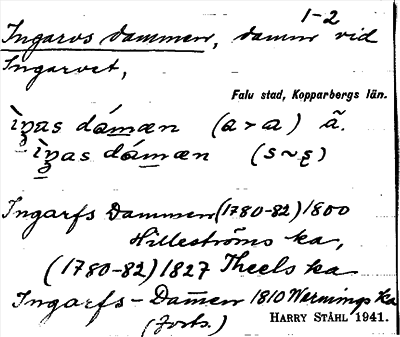 1-2
Ingarvs dammen, damm vid
Ingarvet,
Falu stad, Kopparbergs län.
ìŋas dámæn (a > a) ã.
ìŋas dámæn (s ~ ʂ)
Ingarfs Dammen (1780-82) 1800
Hilleströms ka,
(1780-82) 1827 Theels ka
Ingarfs-Dam̅en 1810 Wernings ka
(forts.) HARRY STÅHL 1941.